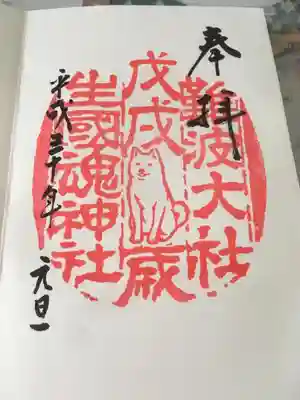 奉拝
難波大社
戊戌歳
生國魂神社
平成三十年 元旦